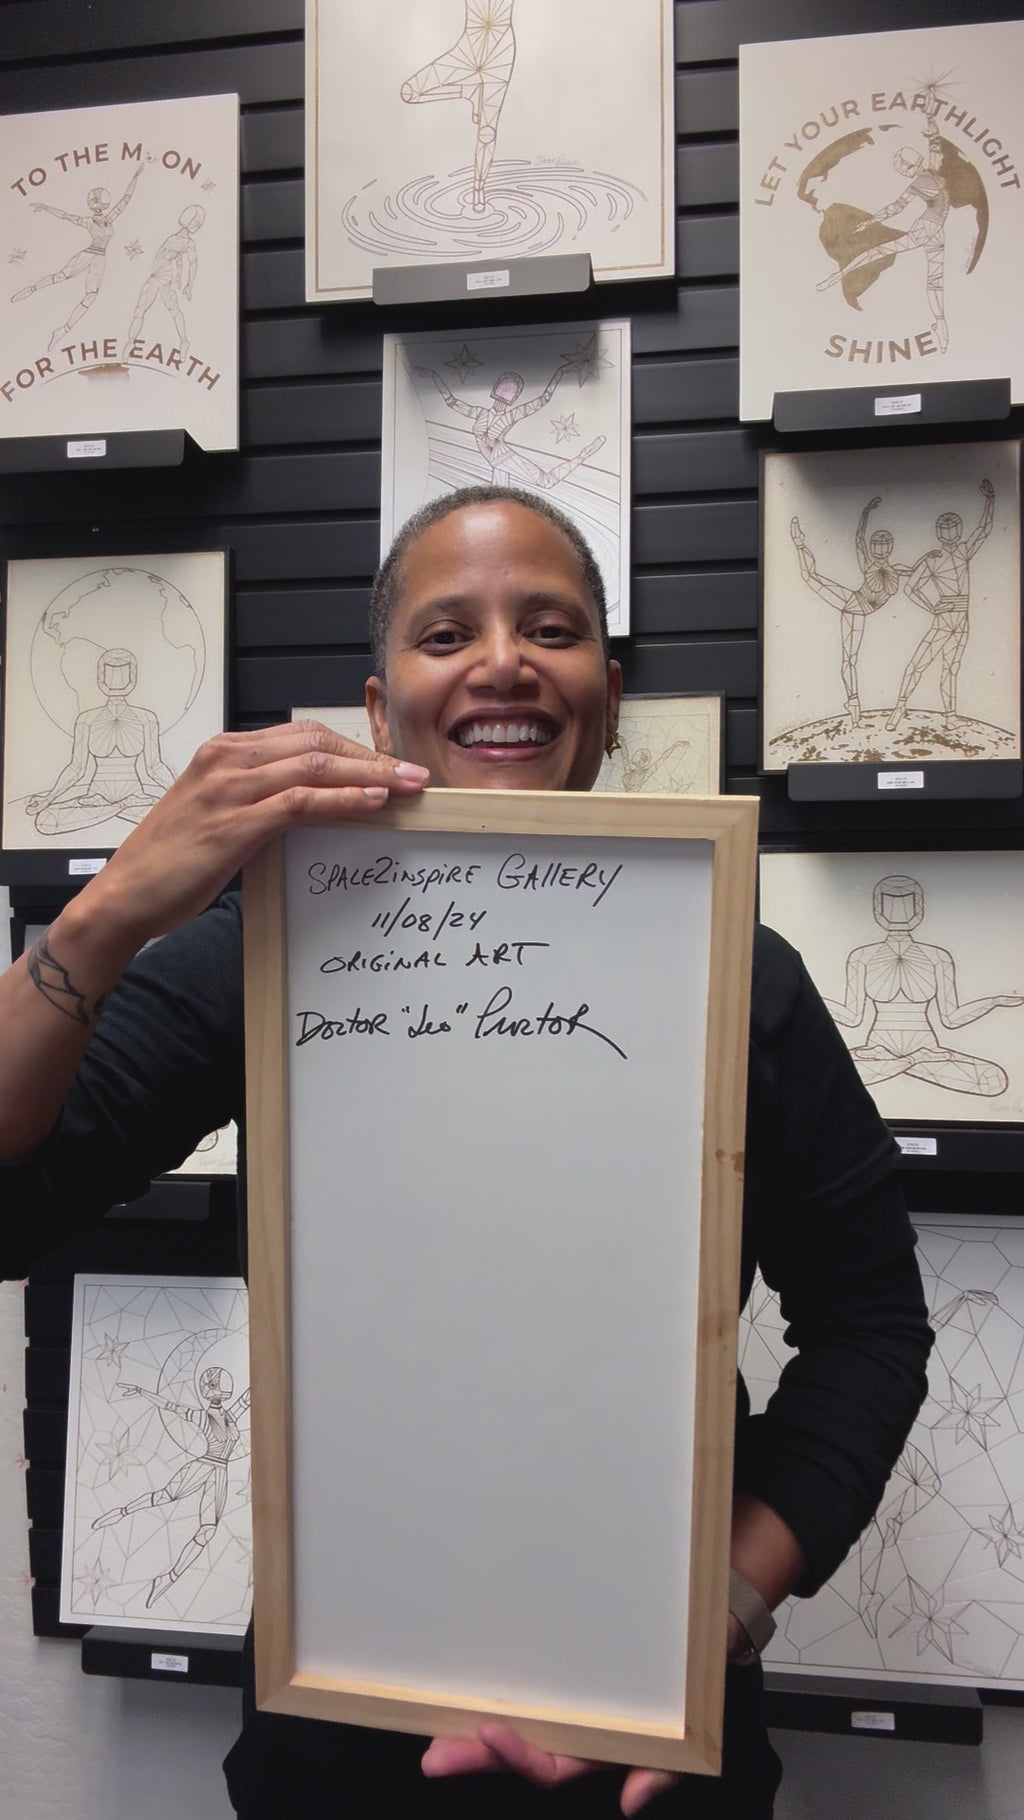 TO THE MOON
FOR THE EARTH
LET YOUR EARTHLIGHT
SHINE
SPACE2INSPIRE GALLERY
11/08/24
ORIGINAL ART
DOCTOR "Leo" PROCTOR